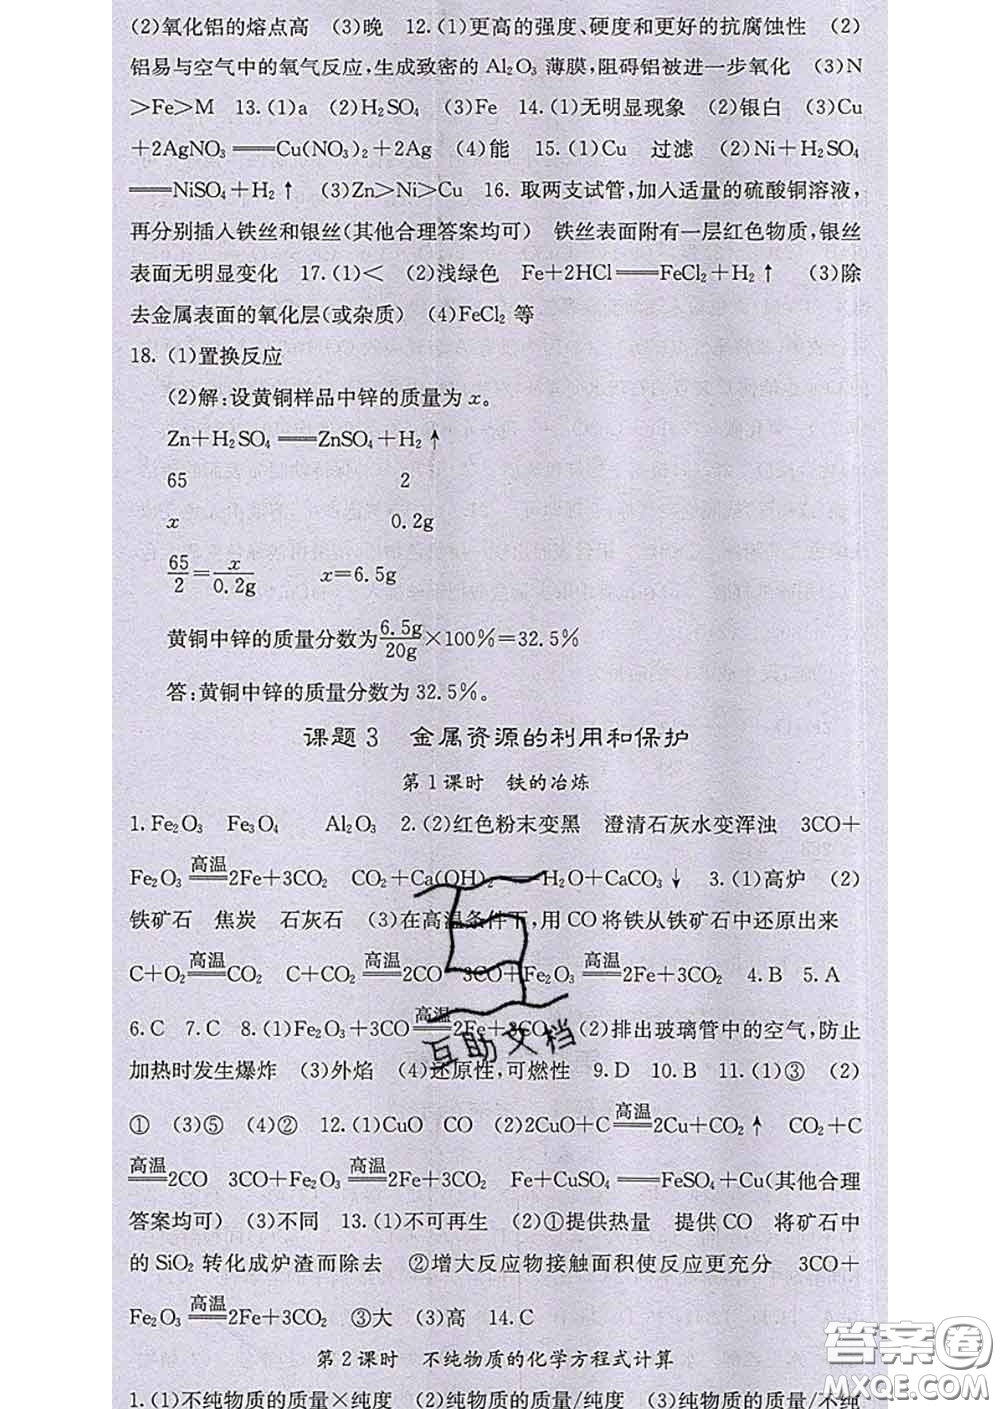 (2)氧化铝的熔点高 (3)晚 12.(1)更高的强度、硬度和更好的抗腐蚀性 (2)
铝易与空气中的氧气反应,生成致密的Al₂O₃薄膜,阻碍铝被进一步氧化 (3)N
>Fe>M 13.(1)a (2)H₂SO₄ (3)Fe 14.(1)无明显现象 (2)银白 (3)Cu
+2AgNO₃══Cu(NO₃)₂+2Ag (4)能 15.(1)Cu 过滤 (2)Ni+H₂SO₄
══NiSO₄+H₂↑ (3)Zn>Ni>Cu 16. 取两支试管,加入适量的硫酸铜溶液,
再分别插入铁丝和银丝(其他合理答案均可) 铁丝表面附有一层红色物质,银丝
表面无明显变化 17.(1)< (2)浅绿色 Fe+2HCl══FeCl₂+H₂↑ (3)除
去金属表面的氧化层(或杂质) (4)FeCl₂等
18. (1)置换反应
(2)解:设黄铜样品中锌的质量为x。
Zn+H₂SO₄══ZnSO₄+H₂↑
65 2
x 0.2g
65/2=x/0.2g x=6.5g
黄铜中锌的质量分数为6.5g/20g×100%=32.5%
答:黄铜中锌的质量分数为32.5%。
课题3 金属资源的利用和保护
第1课时 铁的冶炼
1.Fe₂O₃ Fe₃O₄ Al₂O₃ 2.(2)红色粉末变黑 澄清石灰水变浑浊 3CO+
Fe₂O₃ 高温══ 2Fe+3CO₂ CO₂+Ca(OH)₂══H₂O+CaCO₃↓ 3.(1)高炉 (2)
铁矿石 焦炭 石灰石 (3)在高温条件下,用CO将铁从铁矿石中还原出来
C+O₂ 高温══ CO₂ C+CO₂ 高温══ 2CO 3CO+Fe₂O₃ 高温══ 2Fe+3CO₂ 4.B 5.A
6.C 7.C 8.(1)Fe₂O₃+3CO 高温══ 2Fe+3CO₂ (2)排出玻璃管中的空气,防止
加热时发生爆炸 (3)外焰 (4)还原性,可燃性 9.D 10.B 11.(1)③ (2)
① (3)⑤ (4)② 12.(1)CuO CO (2)2CuO+C 高温══ 2Cu+CO₂↑ CO₂+C
高温══ 2CO 3CO+Fe₂O₃ 高温══ 2Fe+3CO₂ Fe+CuSO₄══FeSO₄+Cu(其他合理
答案均可) (3)不同 13.(1)不可再生 (2)①提供热量 提供CO 将矿石中
的SiO₂转化成炉渣而除去 ②增大反应物接触面积使反应更充分 3CO+
Fe₂O₃ 高温══ 2Fe+3CO₂ ③大 (3)高 14.C
第2课时 不纯物质的化学方程式计算
1.(1)不纯物质的质量×纯度 (2)纯物质的质量/纯度 (3)纯物质的质量/不纯
互助文档
答案圈
MXQE.COM